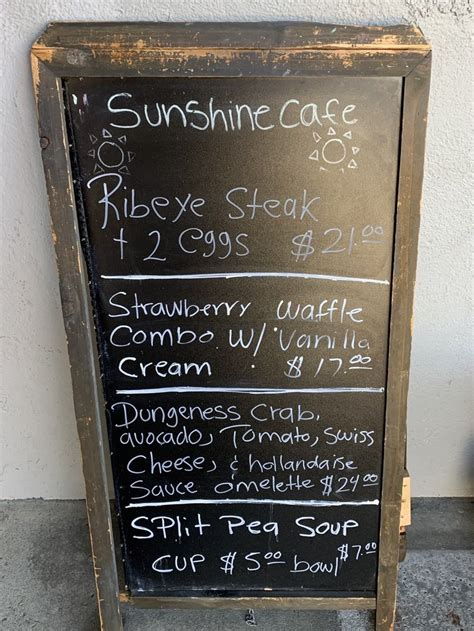 Sunshine Cafe
Ribeye Steak
+ 2 eggs $21.00
Strawberry Waffle
Combo w/ Vanilla
Cream $17.00
Dungeness Crab,
avocado, Tomato, Swiss
Cheese, & hollandaise
Sauce omelette $24.00
Split Pea Soup
Cup $5.00 bowl $7.00